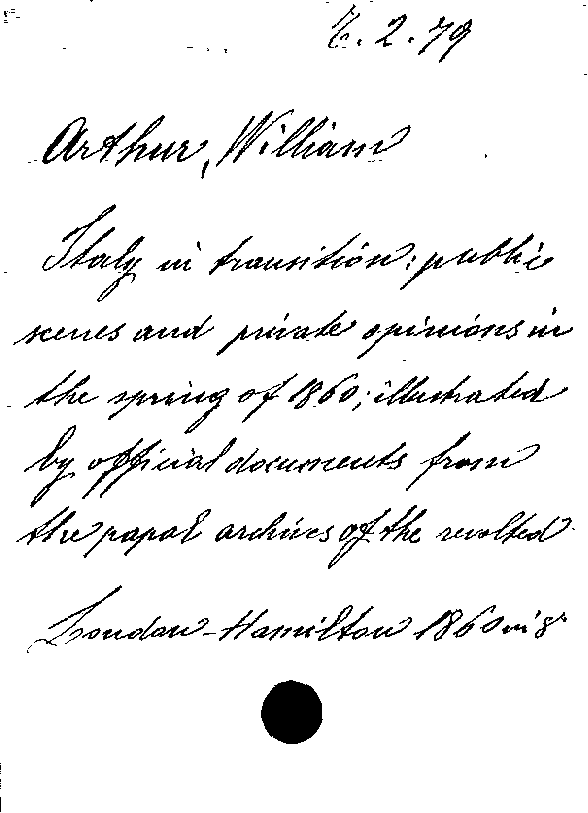 E. 2. 79
Arthur, William
Italy in transition: public
scenes and private opinions in
the spring of 1860; illustrated
by official documents from
the papal archives of the revolted
London - Hamilton 1860 in 8°